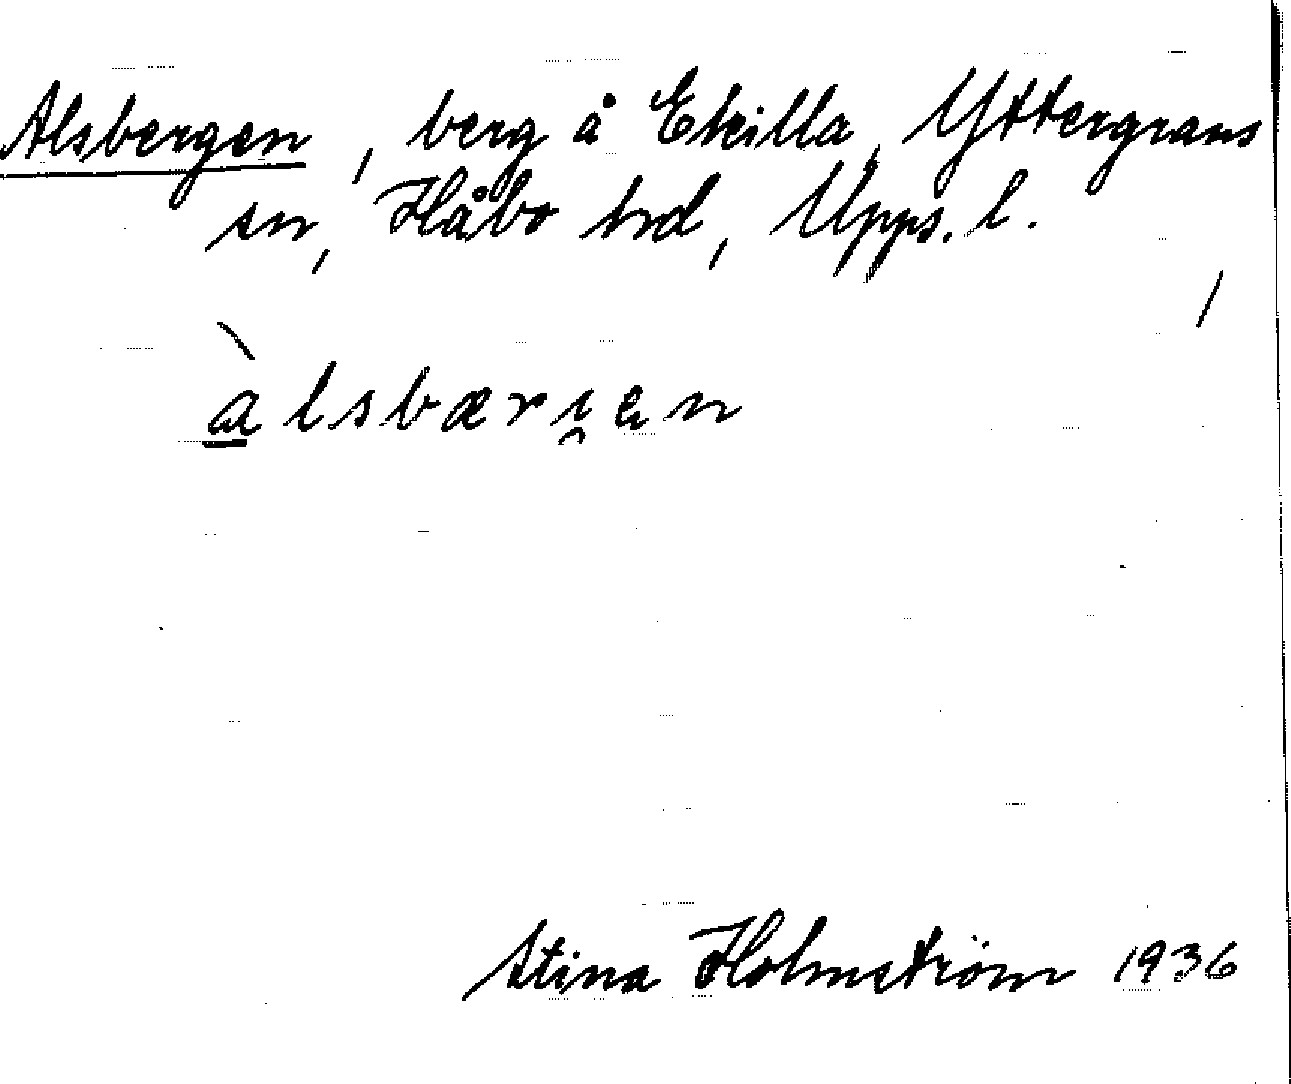 Alsbergen, berg å Ekilla, Yttergrans
sn, Håbo hrd, Upps. l.
àlsbæri̯en
Stina Holmström 1936